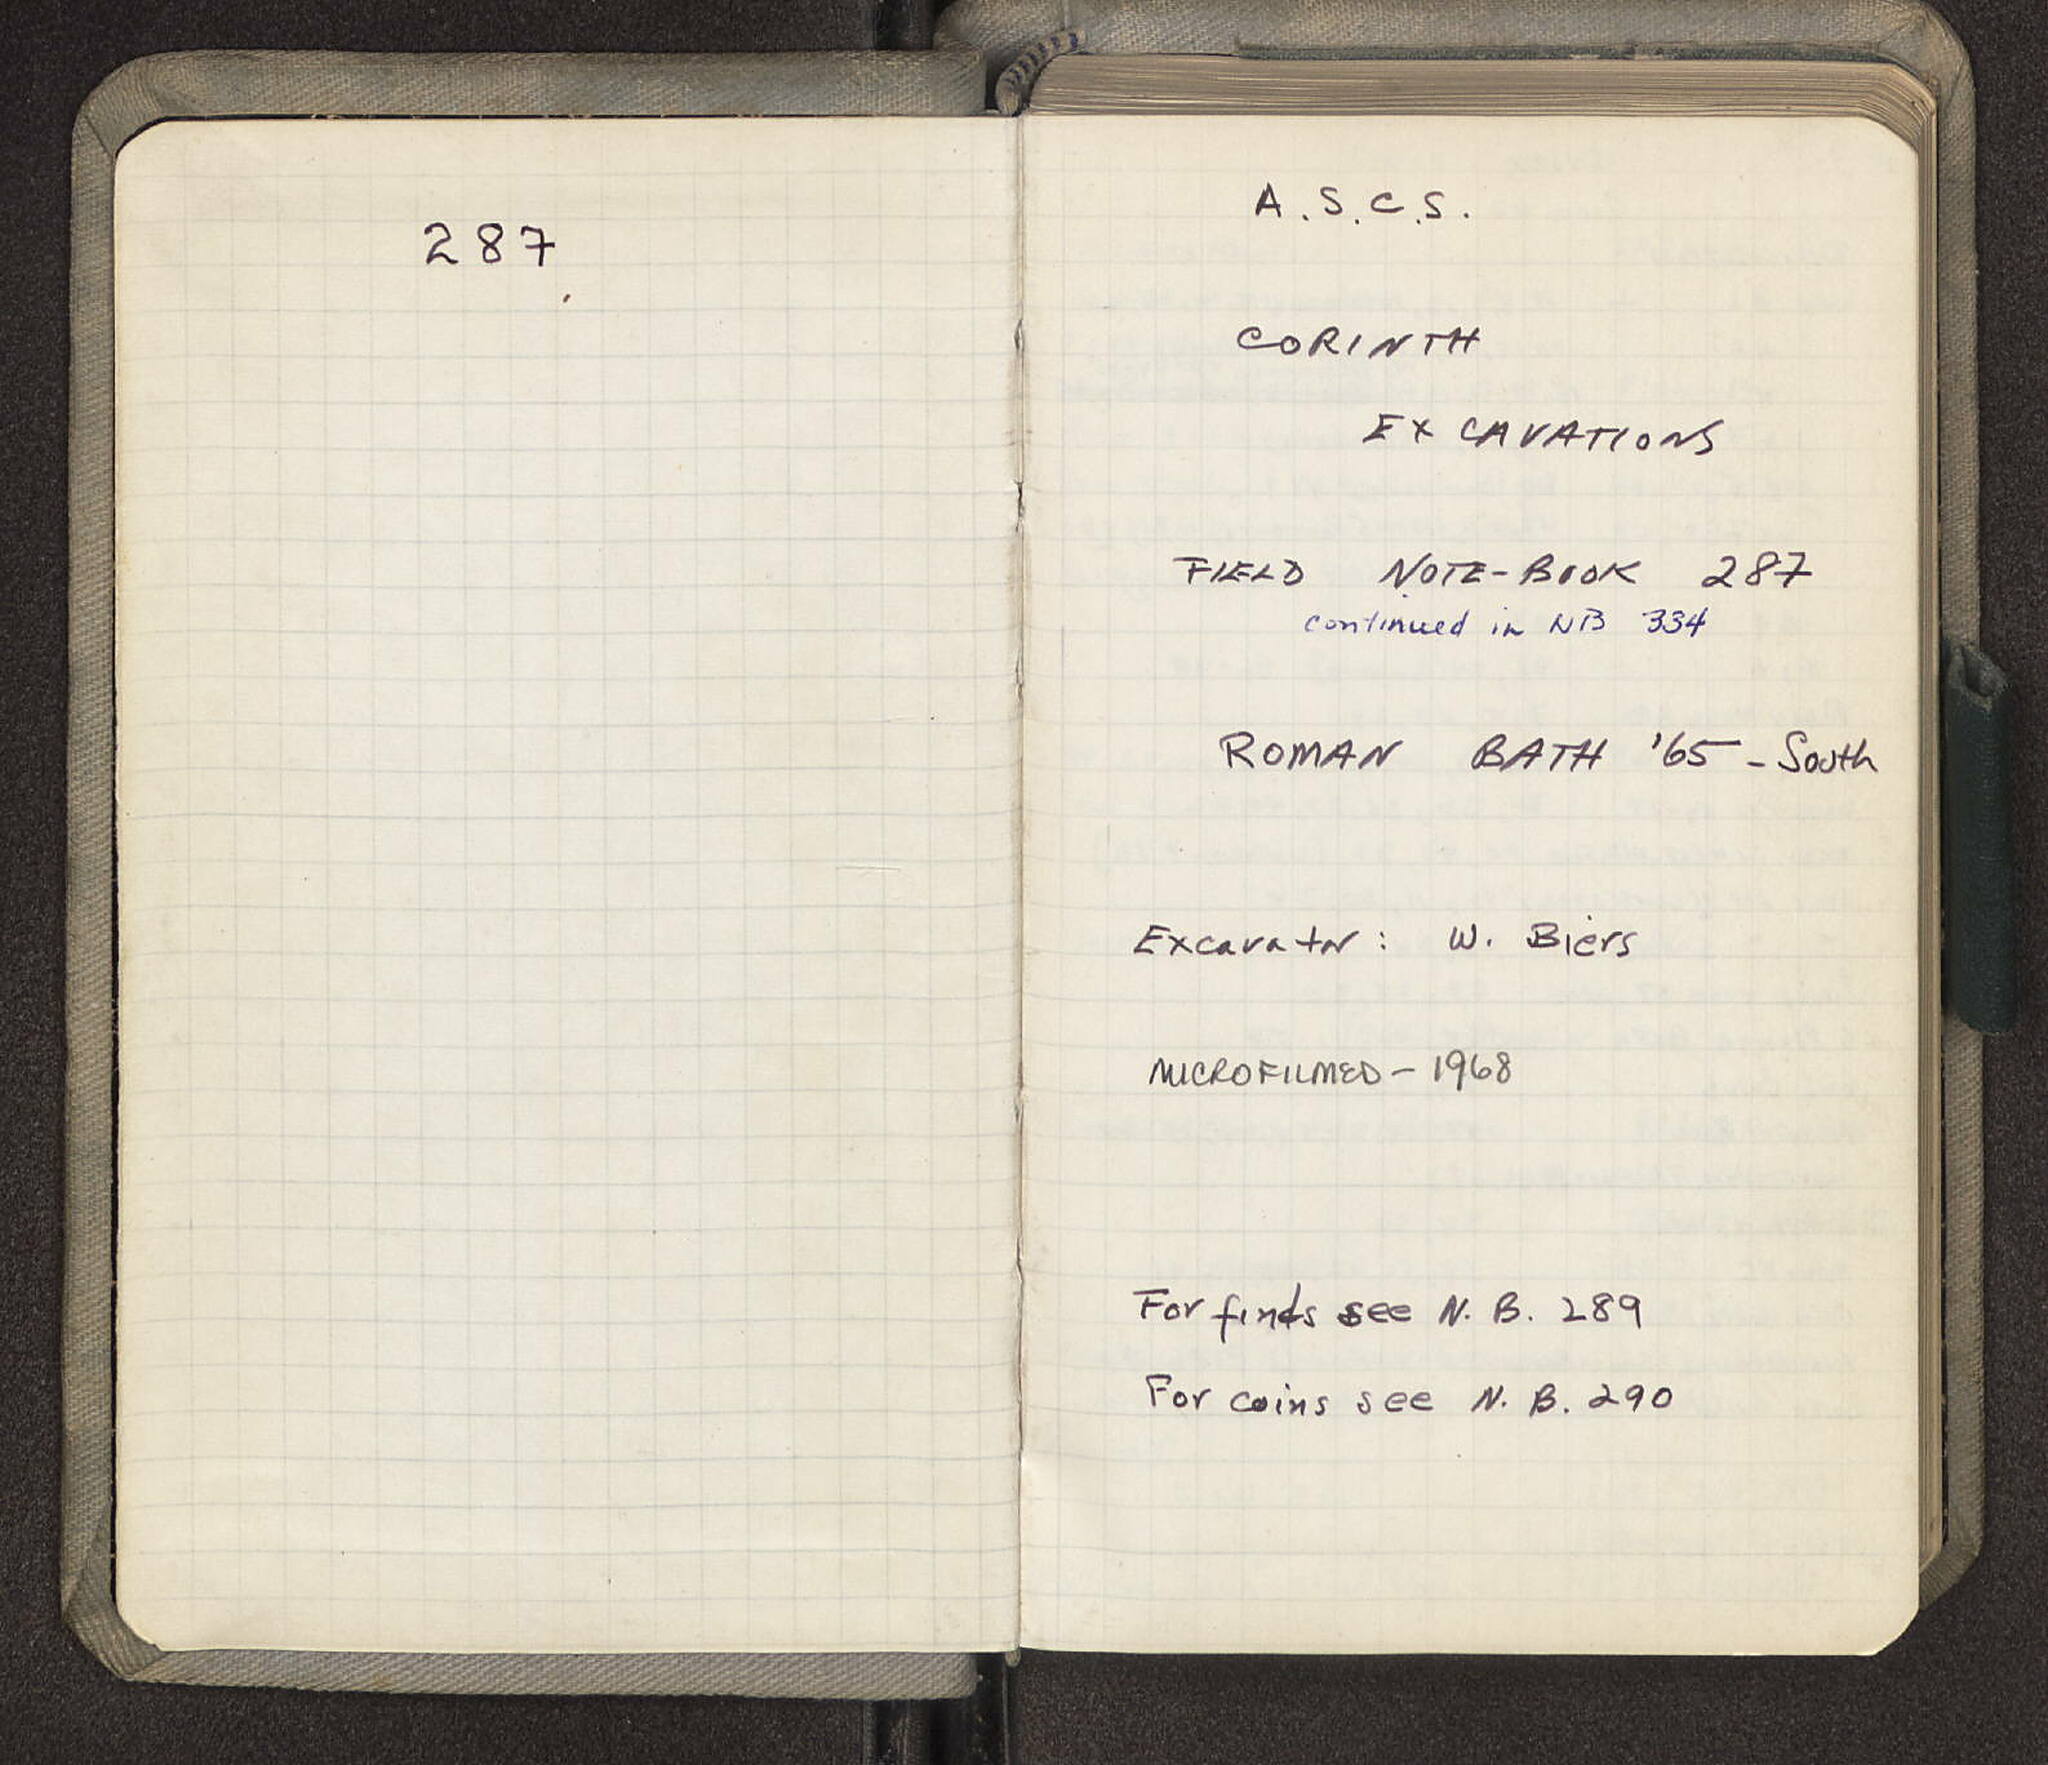 287
A.S.C.S.
CORINTH
EXCAVATIONS
FIELD NOTE-BOOK 287
continued in NB 334
ROMAN BATH '65 - South
Excavator: W. Biers
MICROFILMED - 1968
For finds see N. B. 289
For coins see N. B. 290